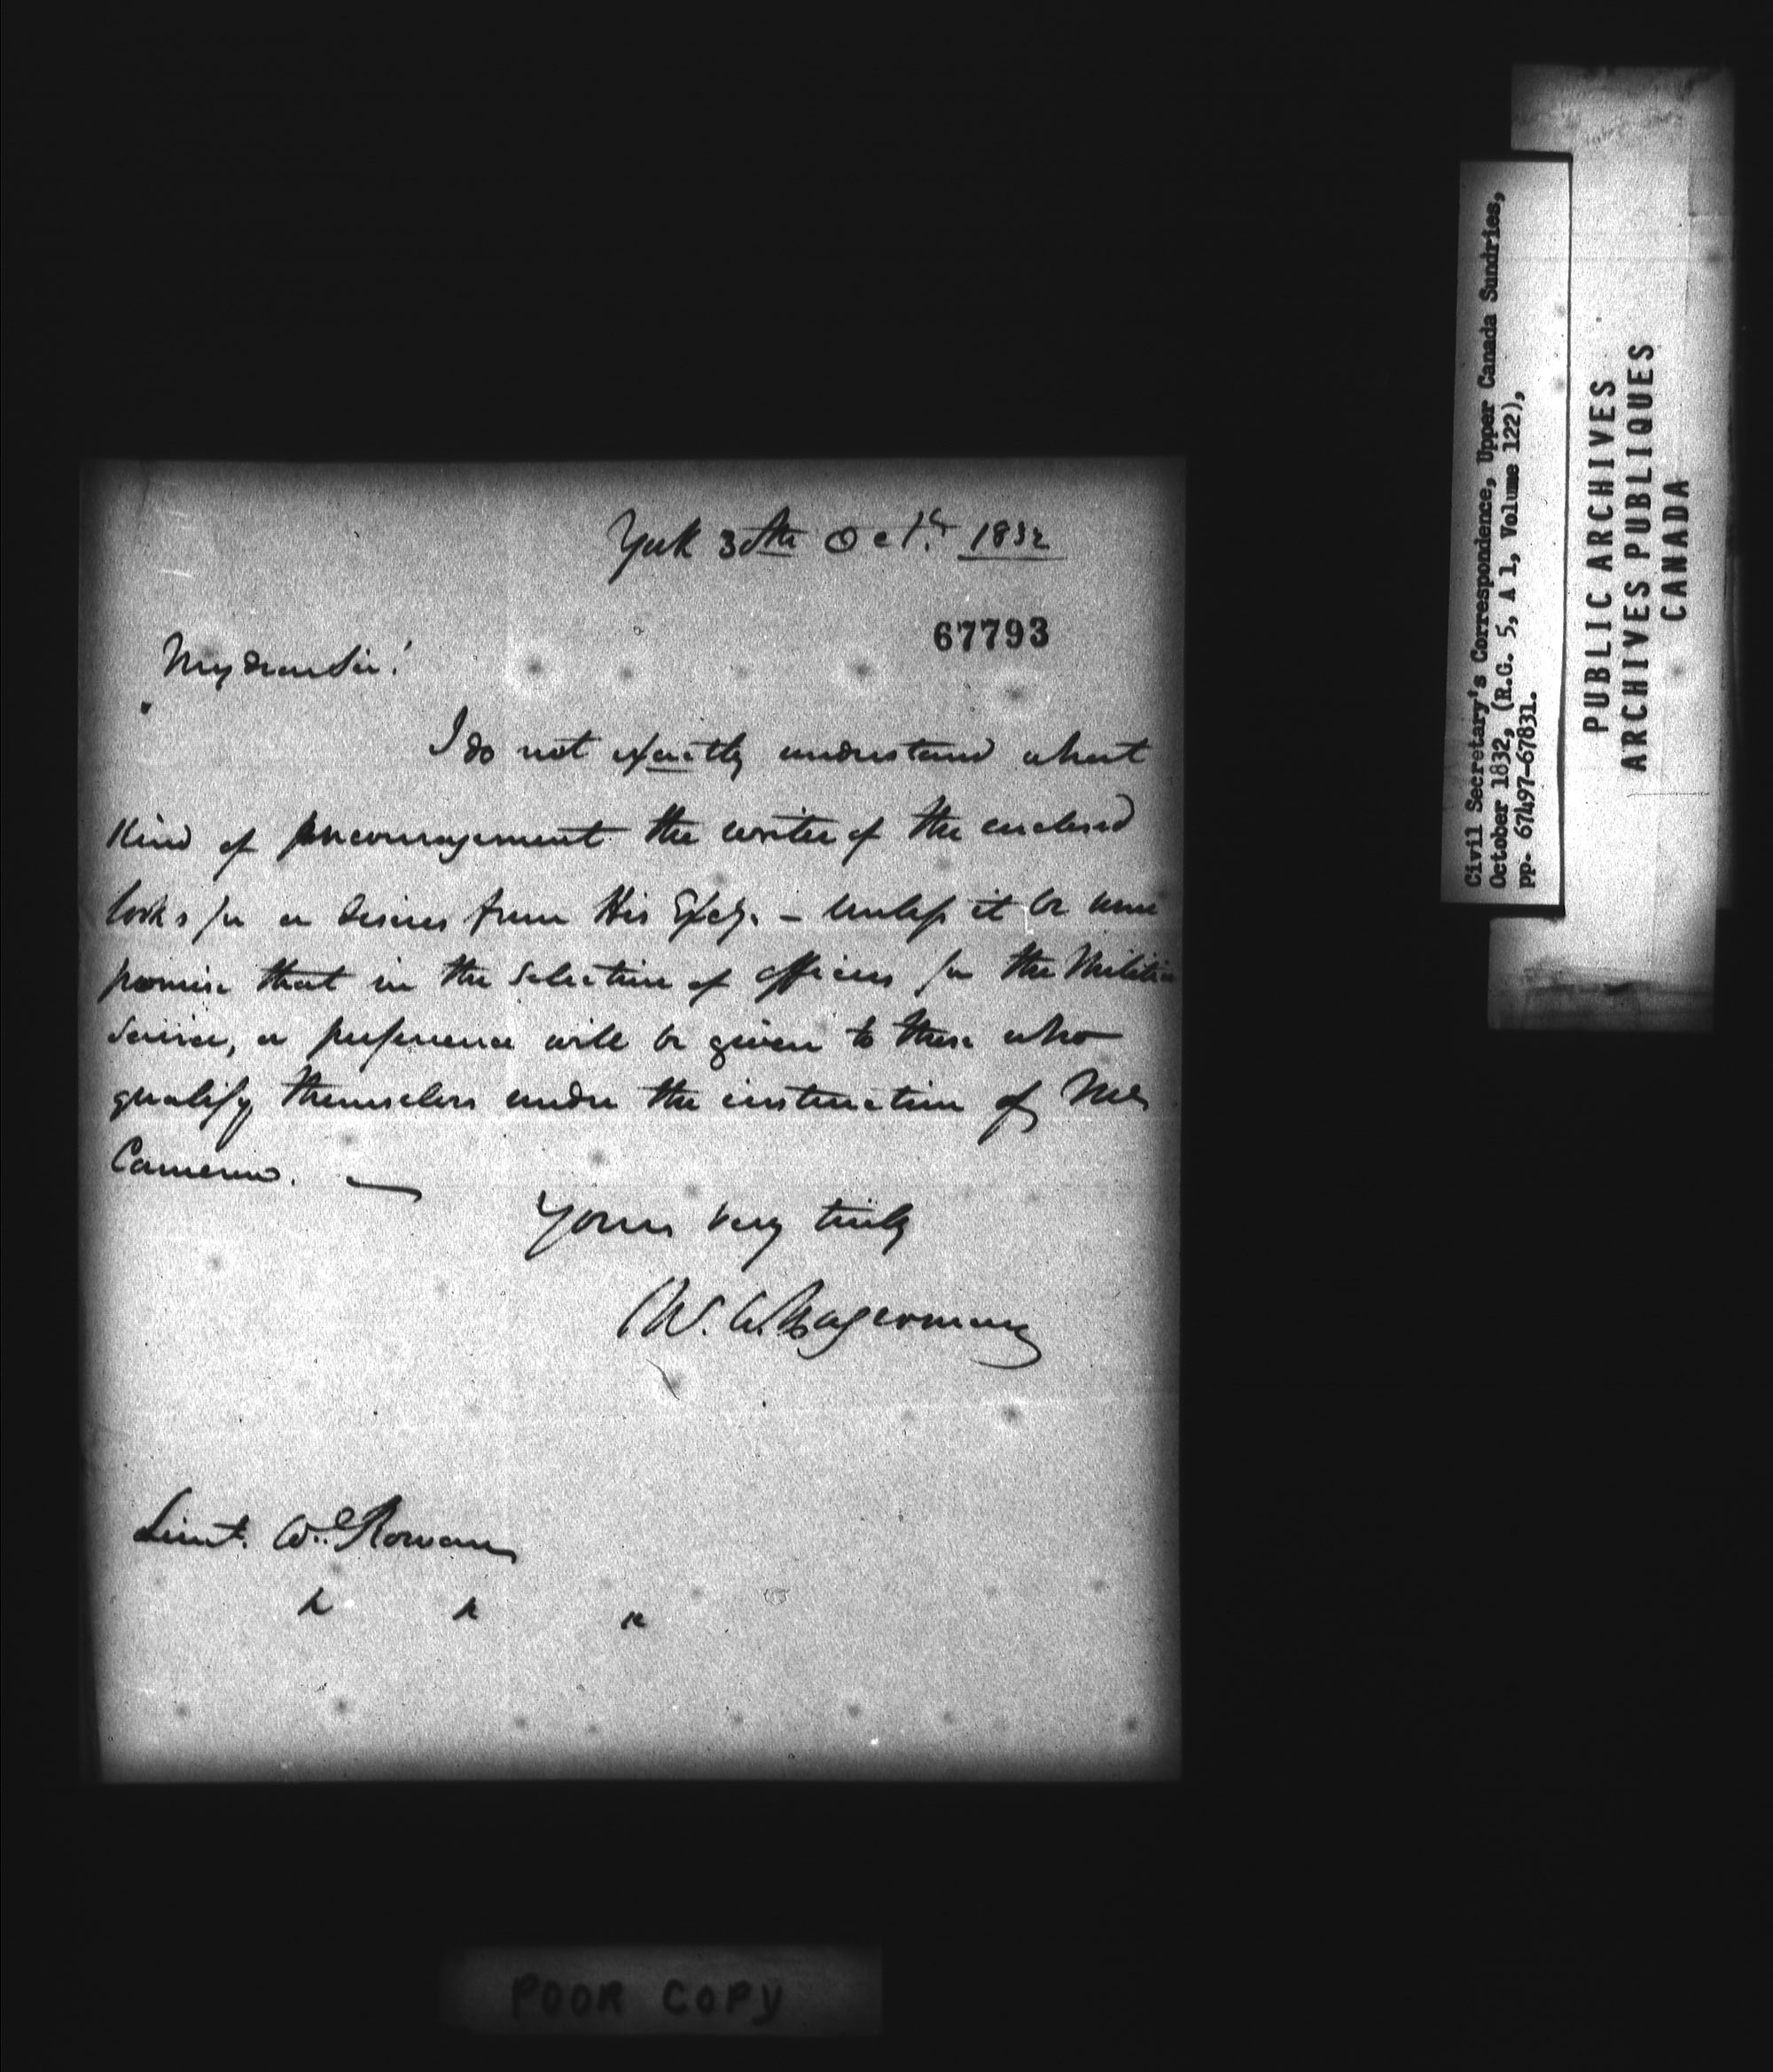 York 30th Octr. 1832
67793
My dear Sir!
I do not exactly understand what
kind of encouragement the writer of the enclosed
looks for or desires from His Excy. – unless it be
promise that in the selection of officers for the Militia
Service, a preference will be given to those who
qualify themselves under the instruction of
Cameron. —
Yours very truly
Hagerman
Lieut. Rowan
Civil Secretary's Correspondence, Upper Canada Sundries,
October 1832, (R.G. 5, A 1, Volume 122),
pp. 67497-67831.
PUBLIC ARCHIVES
ARCHIVES PUBLIQUES
CANADA
POOR COPY